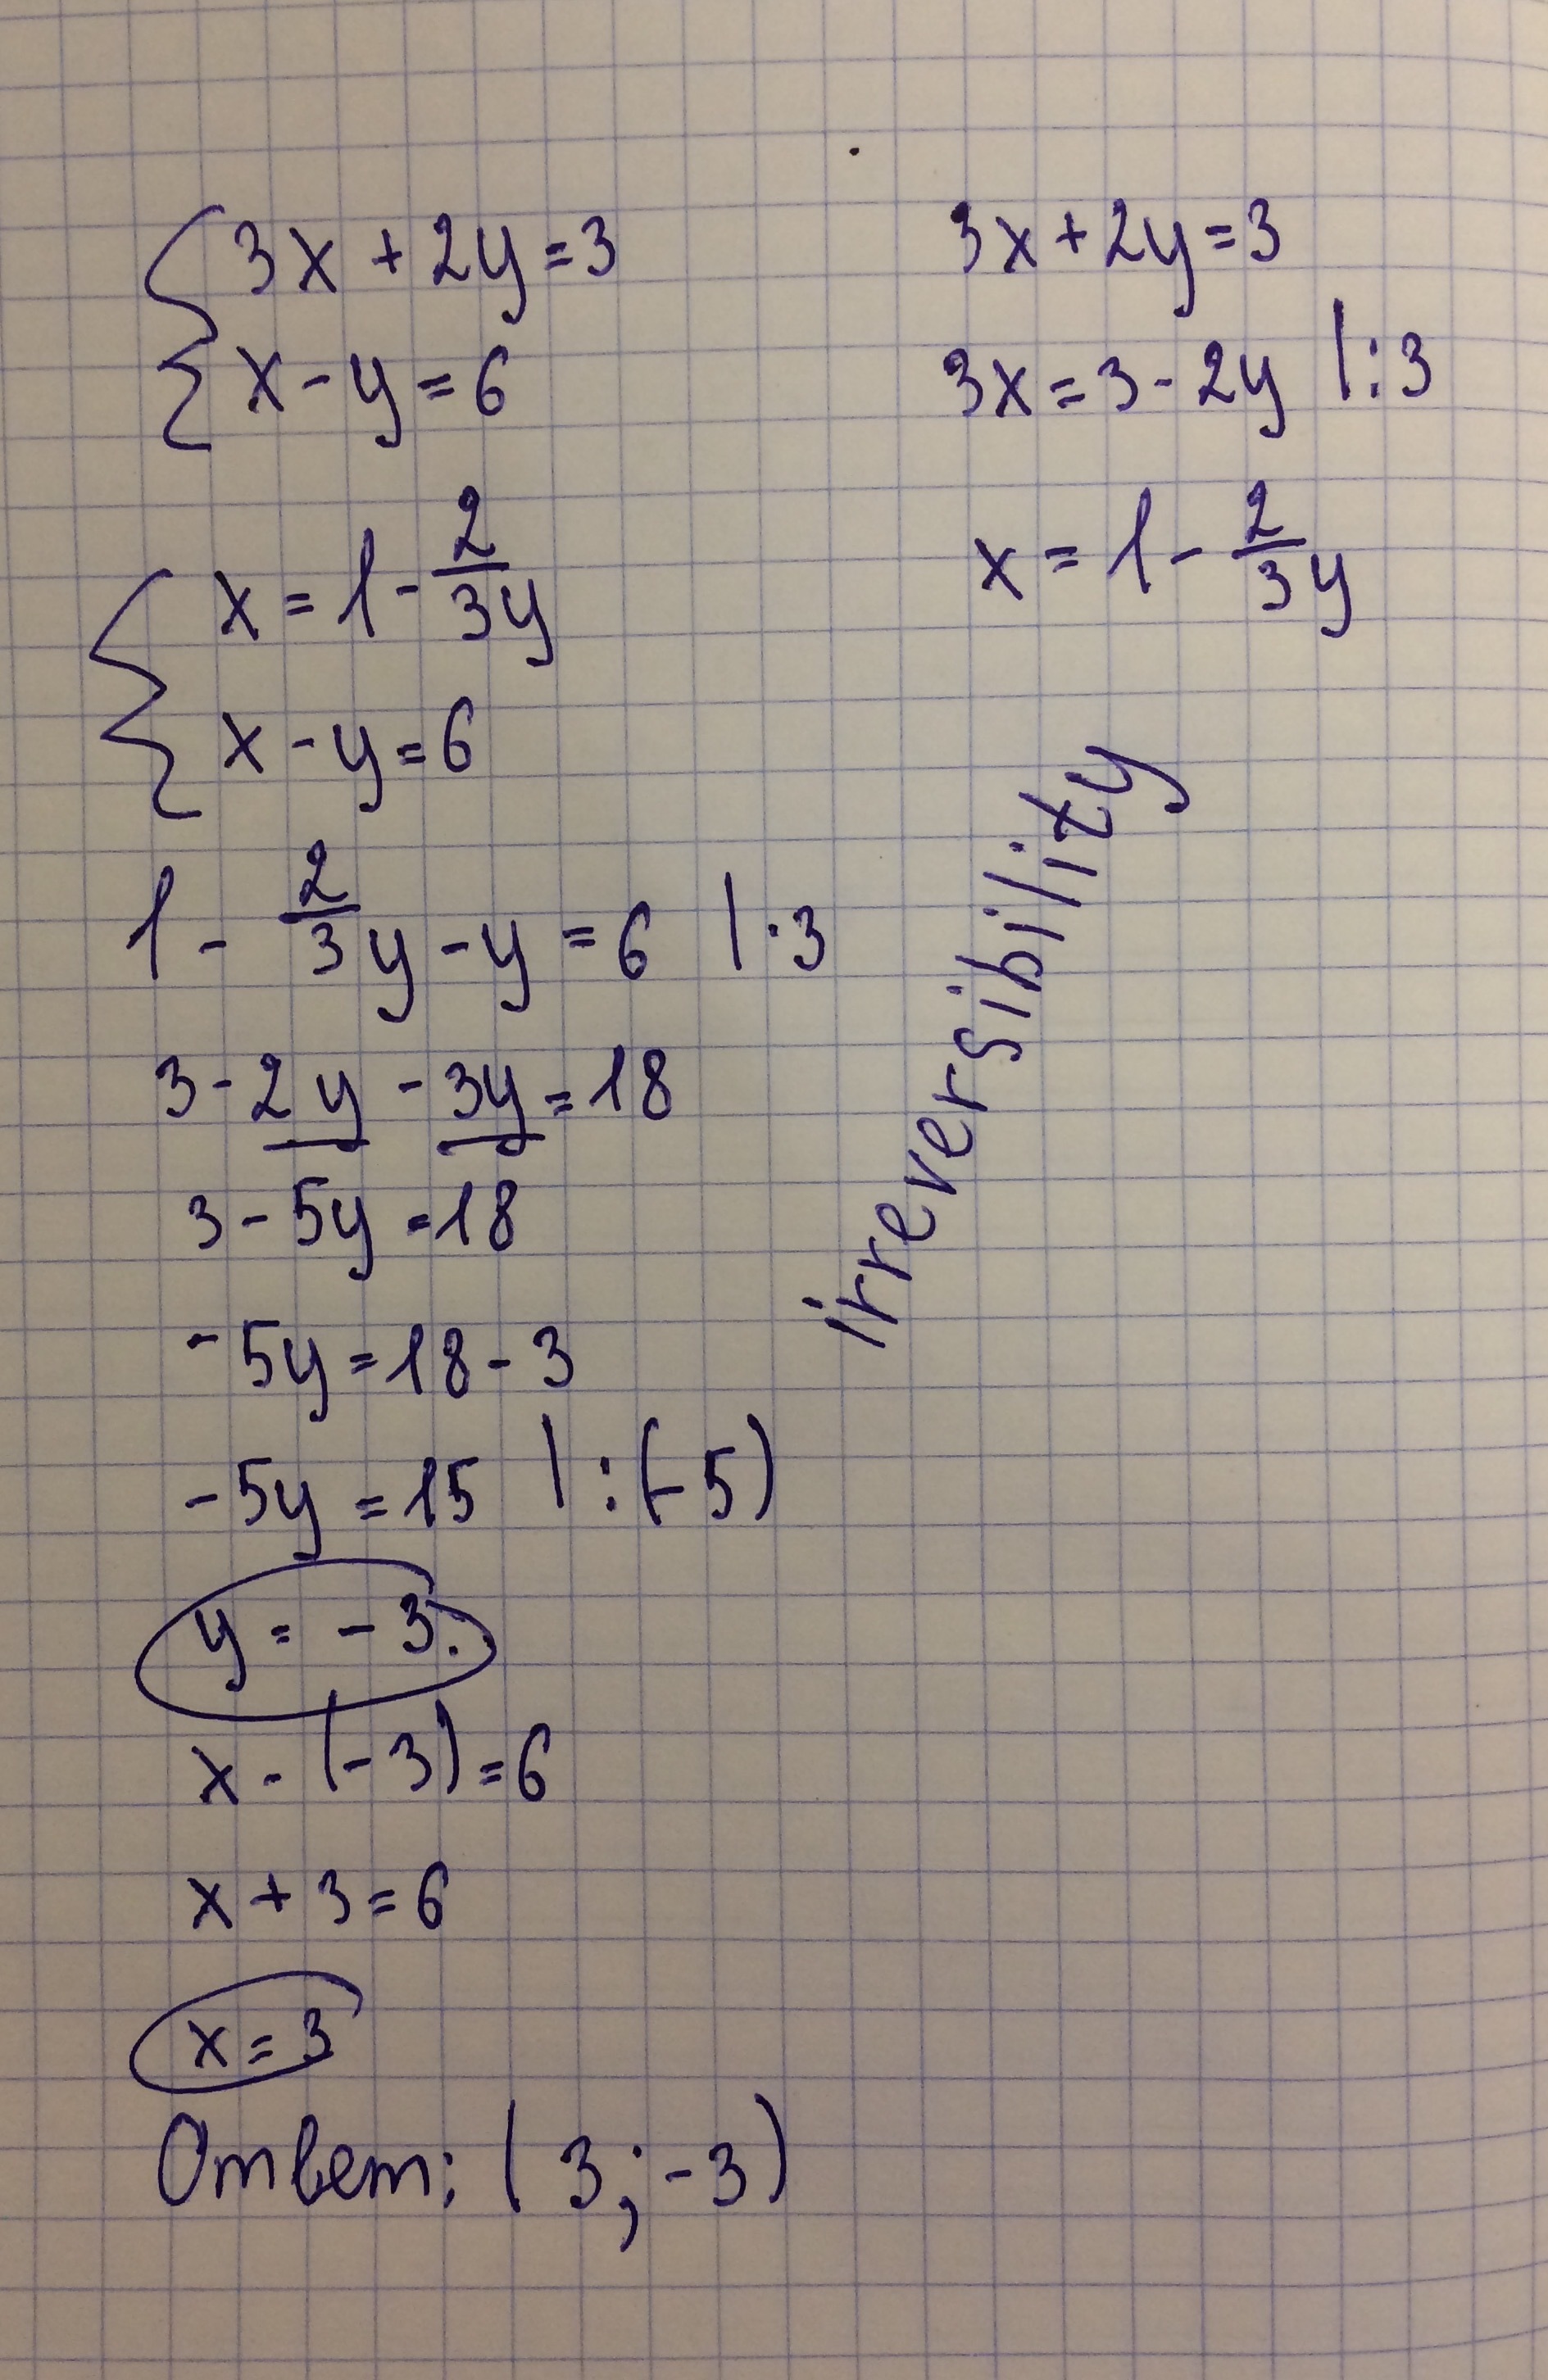 3x + 2y = 3
x - y = 6
3x + 2y = 3
3x = 3 - 2y | : 3
x = 1 - 2/3 y
x = 1 - 2/3 y
x - y = 6
1 - 2/3 y - y = 6 | · 3
3 - 2y - 3y = 18
3 - 5y = 18
-5y = 18 - 3
-5y = 15 | : (-5)
y = -3.
x - (-3) = 6
x + 3 = 6
x = 3
Ответ: (3; -3)
irreversibility